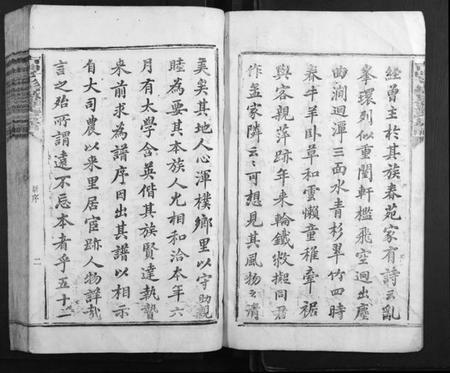 經曾主於其族春苑家有詩云亂
峯環列似重闈軒檻飛空迥出塵
曲澗迴潭三面水青杉翠竹四時
春牛羊臥草和雲懶童稚牽裾
與客親萍跡年來輪鐵擬同君
作並家隣云云可想見其風物之清
美矣其地人心渾樸鄉里以守助親
睦為要其本族人尤相和洽本年六
月有太學含英偕其族賢達執贄
來前求為譜序因出其譜以相示
自大司農以來里居宦跡人物詳哉
言之殆所謂遠不忘本者乎五十一
序
二